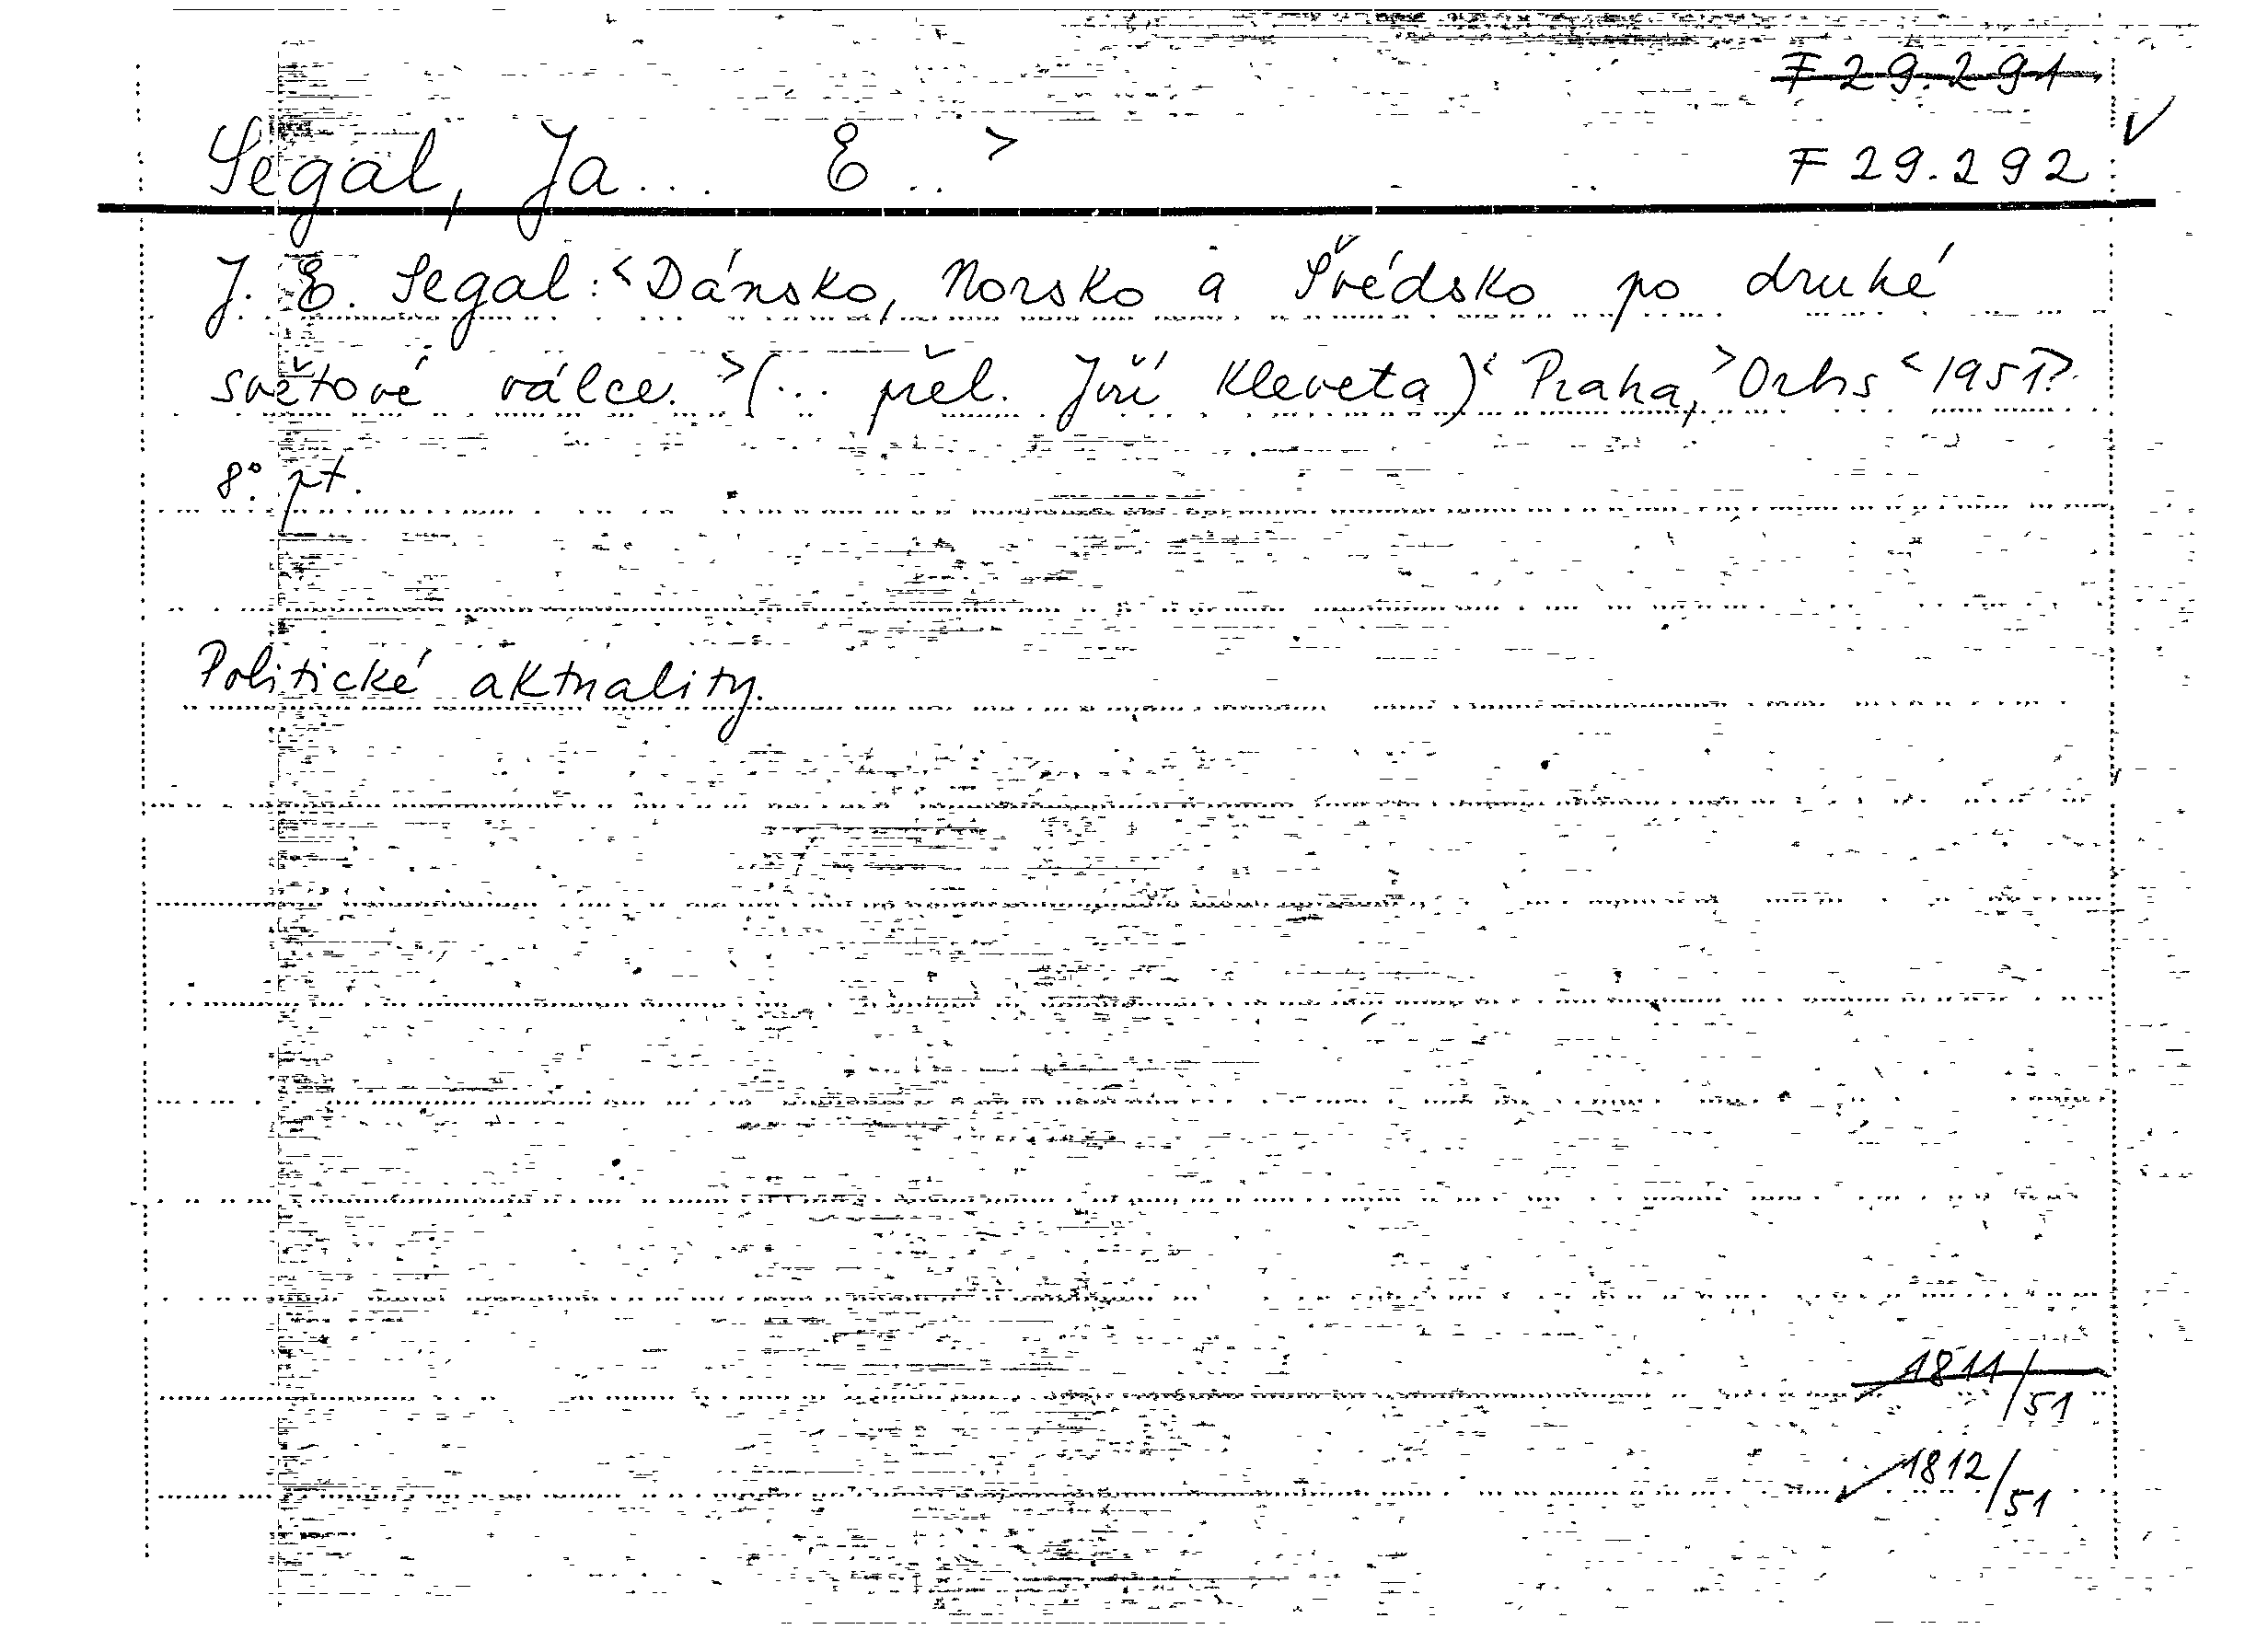 F 29.291
Segal, Ja... E.. >
F 29.292
J. E. Segal: <Dánsko, Norsko a Švédsko po druhé
světové válce. >(... přel. Jiří Kleveta)< Praha, >Orbis <1951>.
8°. pt.
Politické aktuality.
1811/51
1812/51